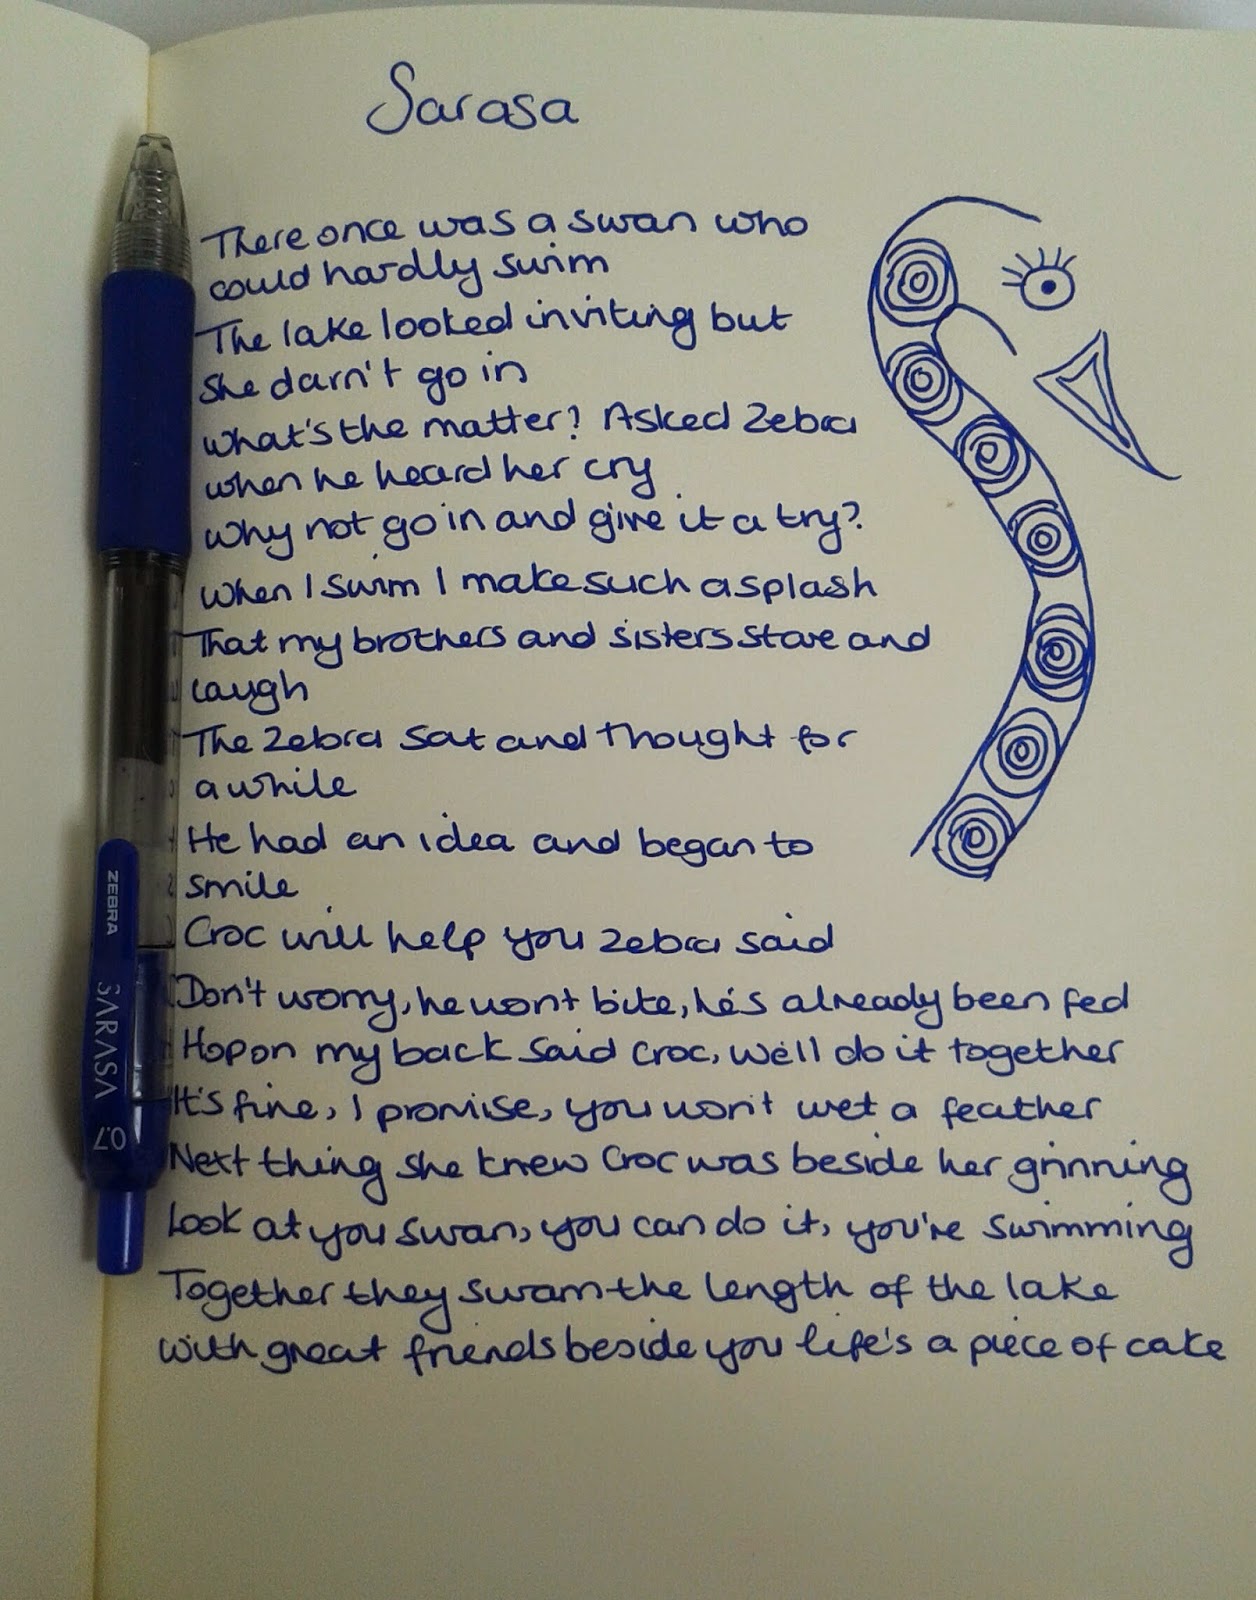 Sarasa
There once was a swan who
could hardly swim
The lake looked inviting but
she darn't go in
what's the matter? Asked Zebra
when he heard her cry
why not go in and give it a try?
when I swim I make such a splash
That my brothers and sisters stare and
laugh
The Zebra sat and thought for
a while
He had an idea and began to
smile
Croc will help you zebra said
Don't worry, he wont bite, he's already been fed
Hop on my back said croc, we'll do it together
It's fine, I promise, you won't wet a feather
Next thing she knew Croc was beside her grinning
Look at you swan, you can do it, you're swimming
Together they swam the length of the lake
with great friends beside you life's a piece of cake
ZEBRA
SARASA
0.7